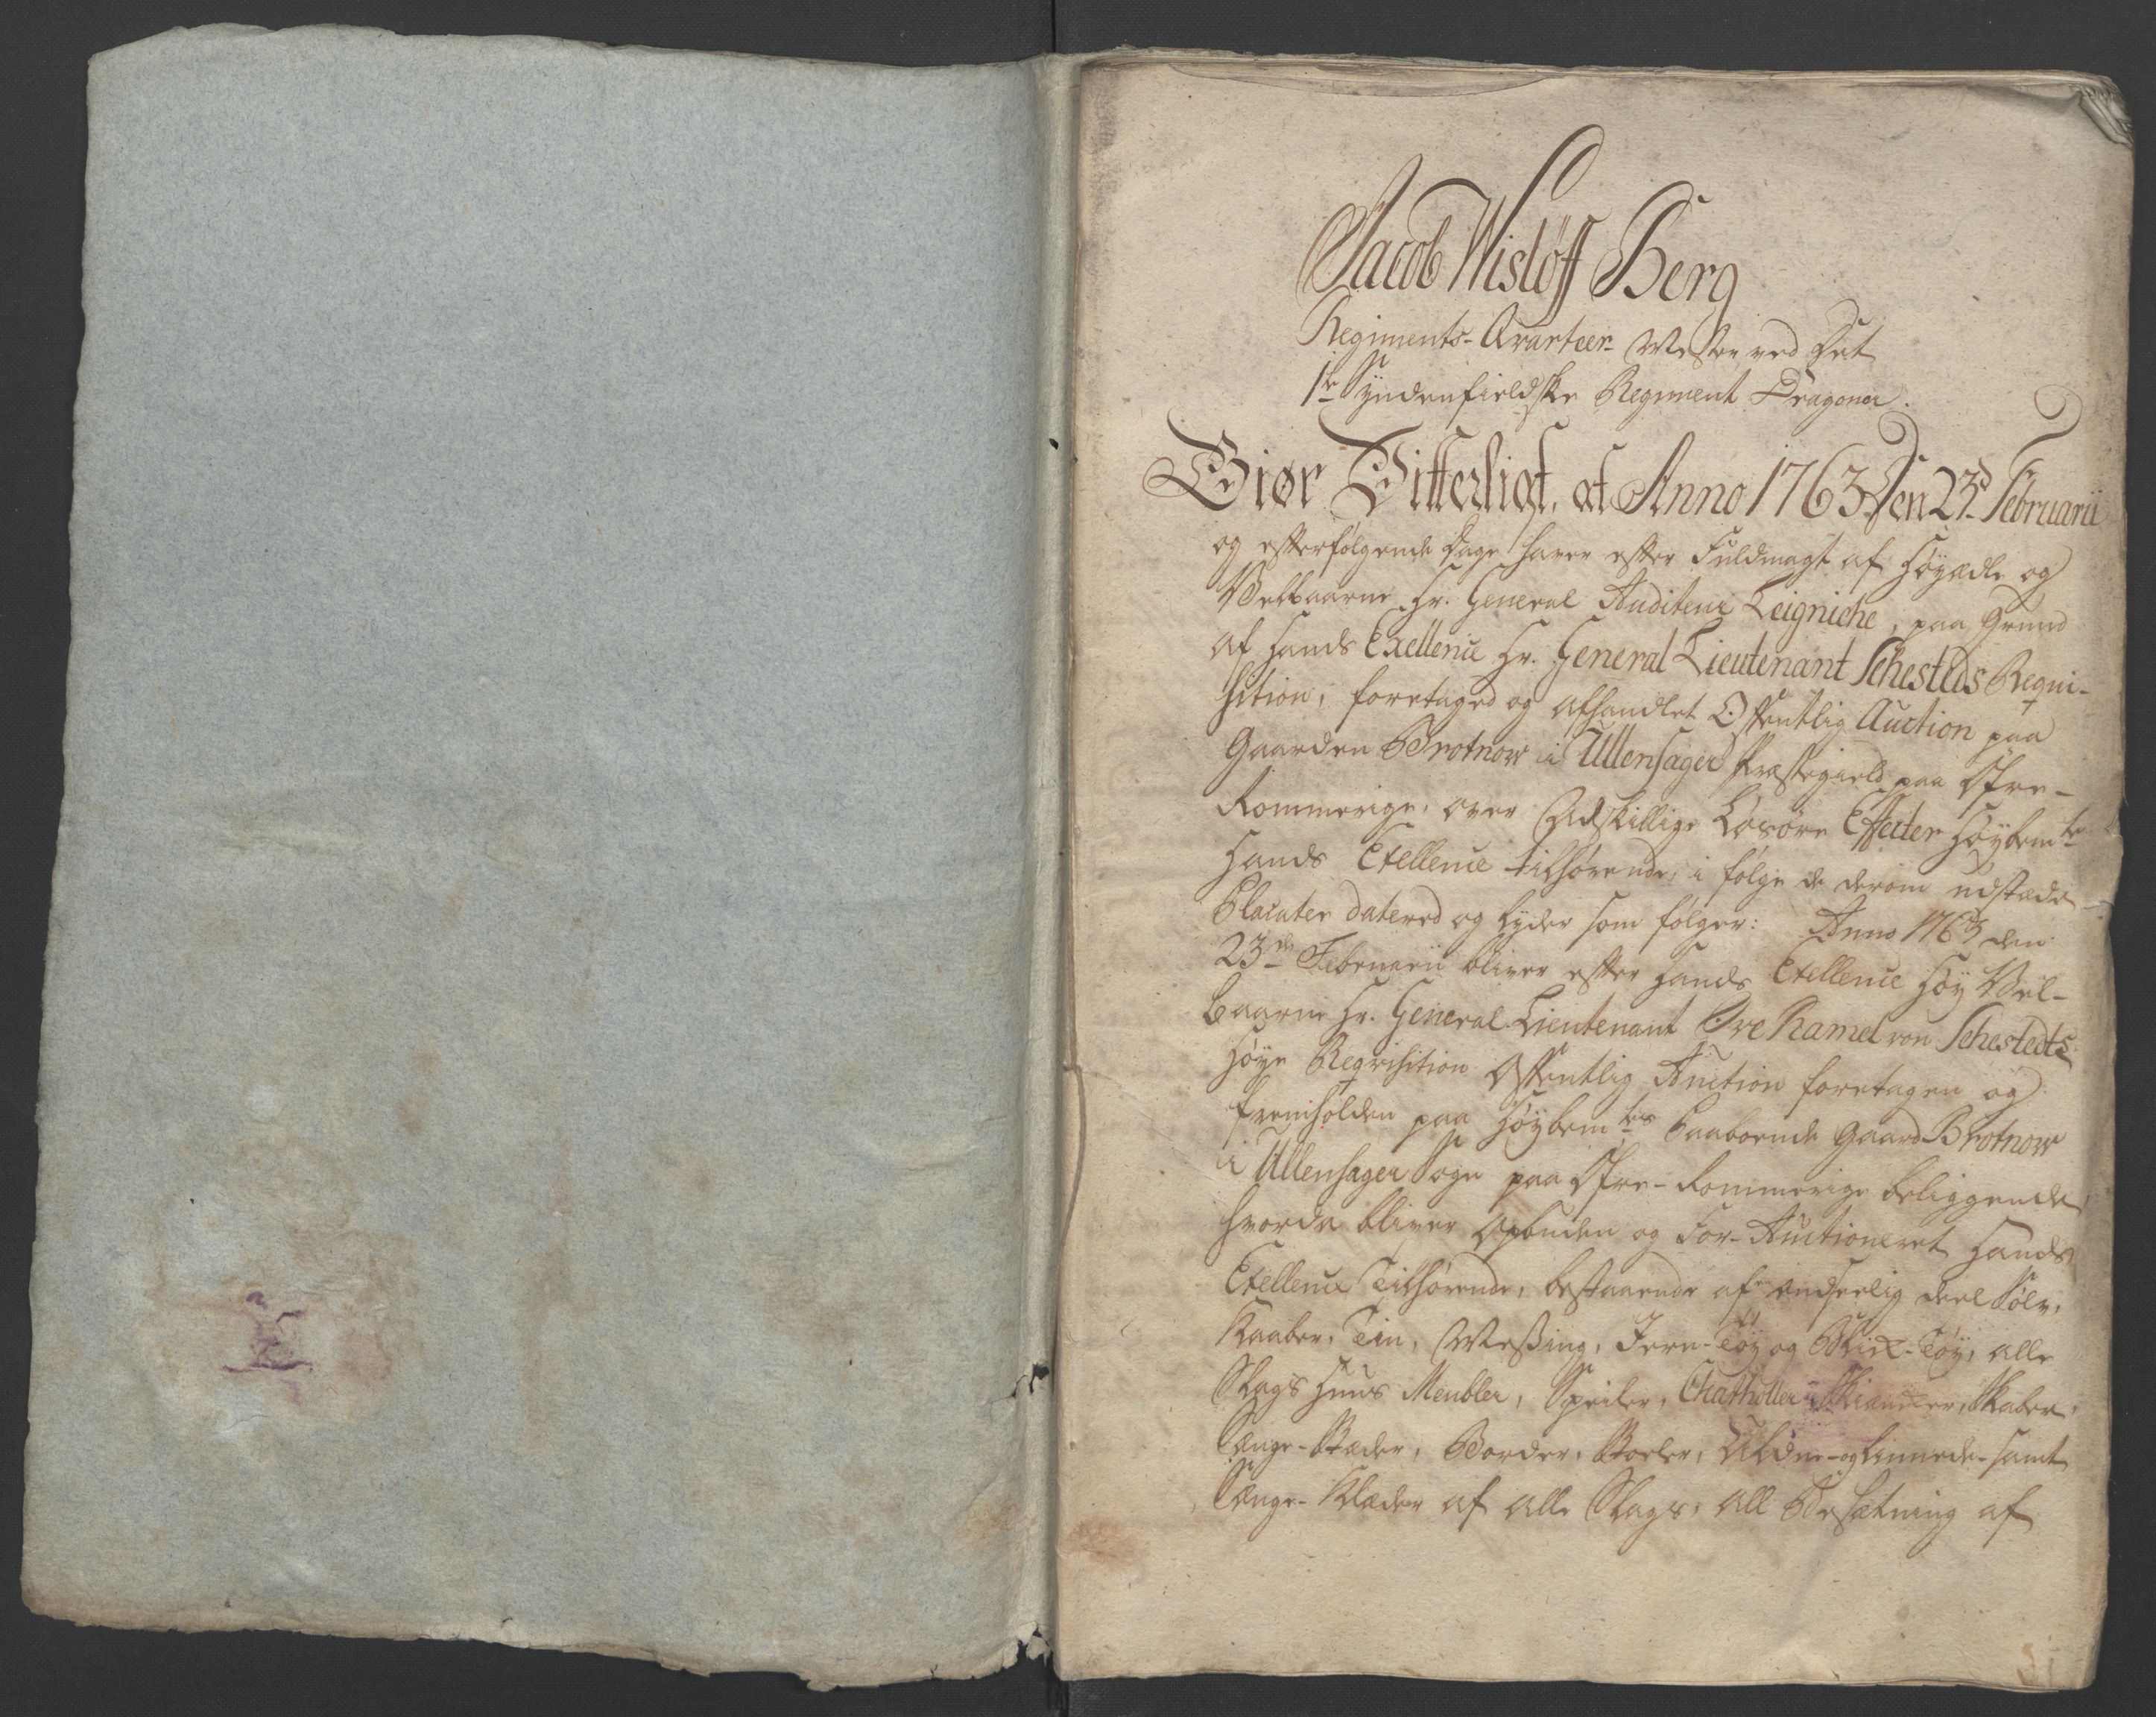 Jacob Wisløff Berg
Regiments-Qvarteer-Mester ved Det
1te Syndenfieldske Regiment Dragoner.
Giør Vitterligt, at Anno 1763 Den 23d Februarii
og efterfølgende Dage haver efter Fuldmagt af Høyædle og
Velbaarne Hr. General Auditeur Leigniche, paa Grund
af Hands Exellence Hr. General Lieutenant Schesteds Reqvi-
sition, foretaged og afhandlet Offentlig Auction paa
Gaarden Brotnow i Ullensager Præstegield paa Øfre-
Rommerige, over Adskillige Løsøre Effecter Høybemte
Hands Exellence tilhørende, i følge de derom udstæde
Placater datered og lyder som følger: Anno 1763 den
23de Februarii bliver efter Hands Exellence Høy Vel-
baarne Hr. General Lieutenant Ove Ramel von Schestedts
Høye Reqvisition Offentlig Auction foretagen og
fremholden paa Høybemtes Paaboende Gaard Brotnow
i Ullensager Sogn paa Øfre-Rommerige beliggende,
hvorda bliver opbuden og For-Auctioneret Hands
Exellence Tilhørende, bestaaende af endeelig deel Sølv,
Kaaber, Tin, Messing, Jern-Tøy og Blik-Tøy, alle
Slags Huus Meubler, Speiler, Chatholler, Skiænker, Skaber,
Senge-Stæder, Border, Stoeler, Uldne- og Linnede- samt
Senge-Klæder af alle Slags, all Besætning af